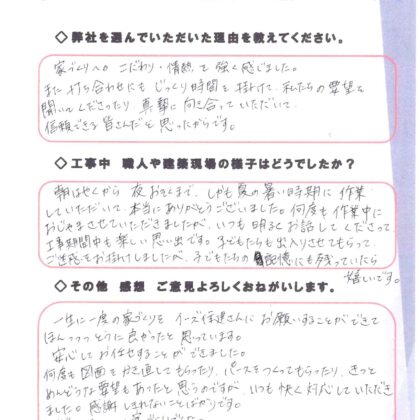 ◇弊社を選んでいただいた理由を教えてください。
家づくりへの こだわり・情熱を 強く感じました。
また打ち合わせにも じっくり時間を掛けて、私たちの要望を
聞いてくださったり、真摯に向き合っていただいて、
信頼できる皆さんだと思ったからです。
◇工事中 職人や建築現場の様子はどうでしたか?
朝はやくから 夜おそくまで、しかも夏の暑い時期に作業
していただいて、本当にありがとうございました。何度も作業中に
おじゃまさせていただきましたが、いつも明るくお話してくださって、
工事期間中も楽しい思い出です。子どもたちも出入りさせてもらって、
ご迷惑をお掛けしましたが、子どもたちの記憶にも残っていたら
嬉しいです。
◇その他 感想 ご意見よろしくおねがいします。
一生に一度の家づくりを イーズ住建さんにお願いすることができて
ほんっっっとうに良かったと思っています。
安心してお任せすることができました。
何度も図面をかき直してもらったり、パースをつくってもらったり、きっと
めんどうな要望もあったと思うのですが、いつも快く対応していただき
ました。感謝しきれないことばかりです。